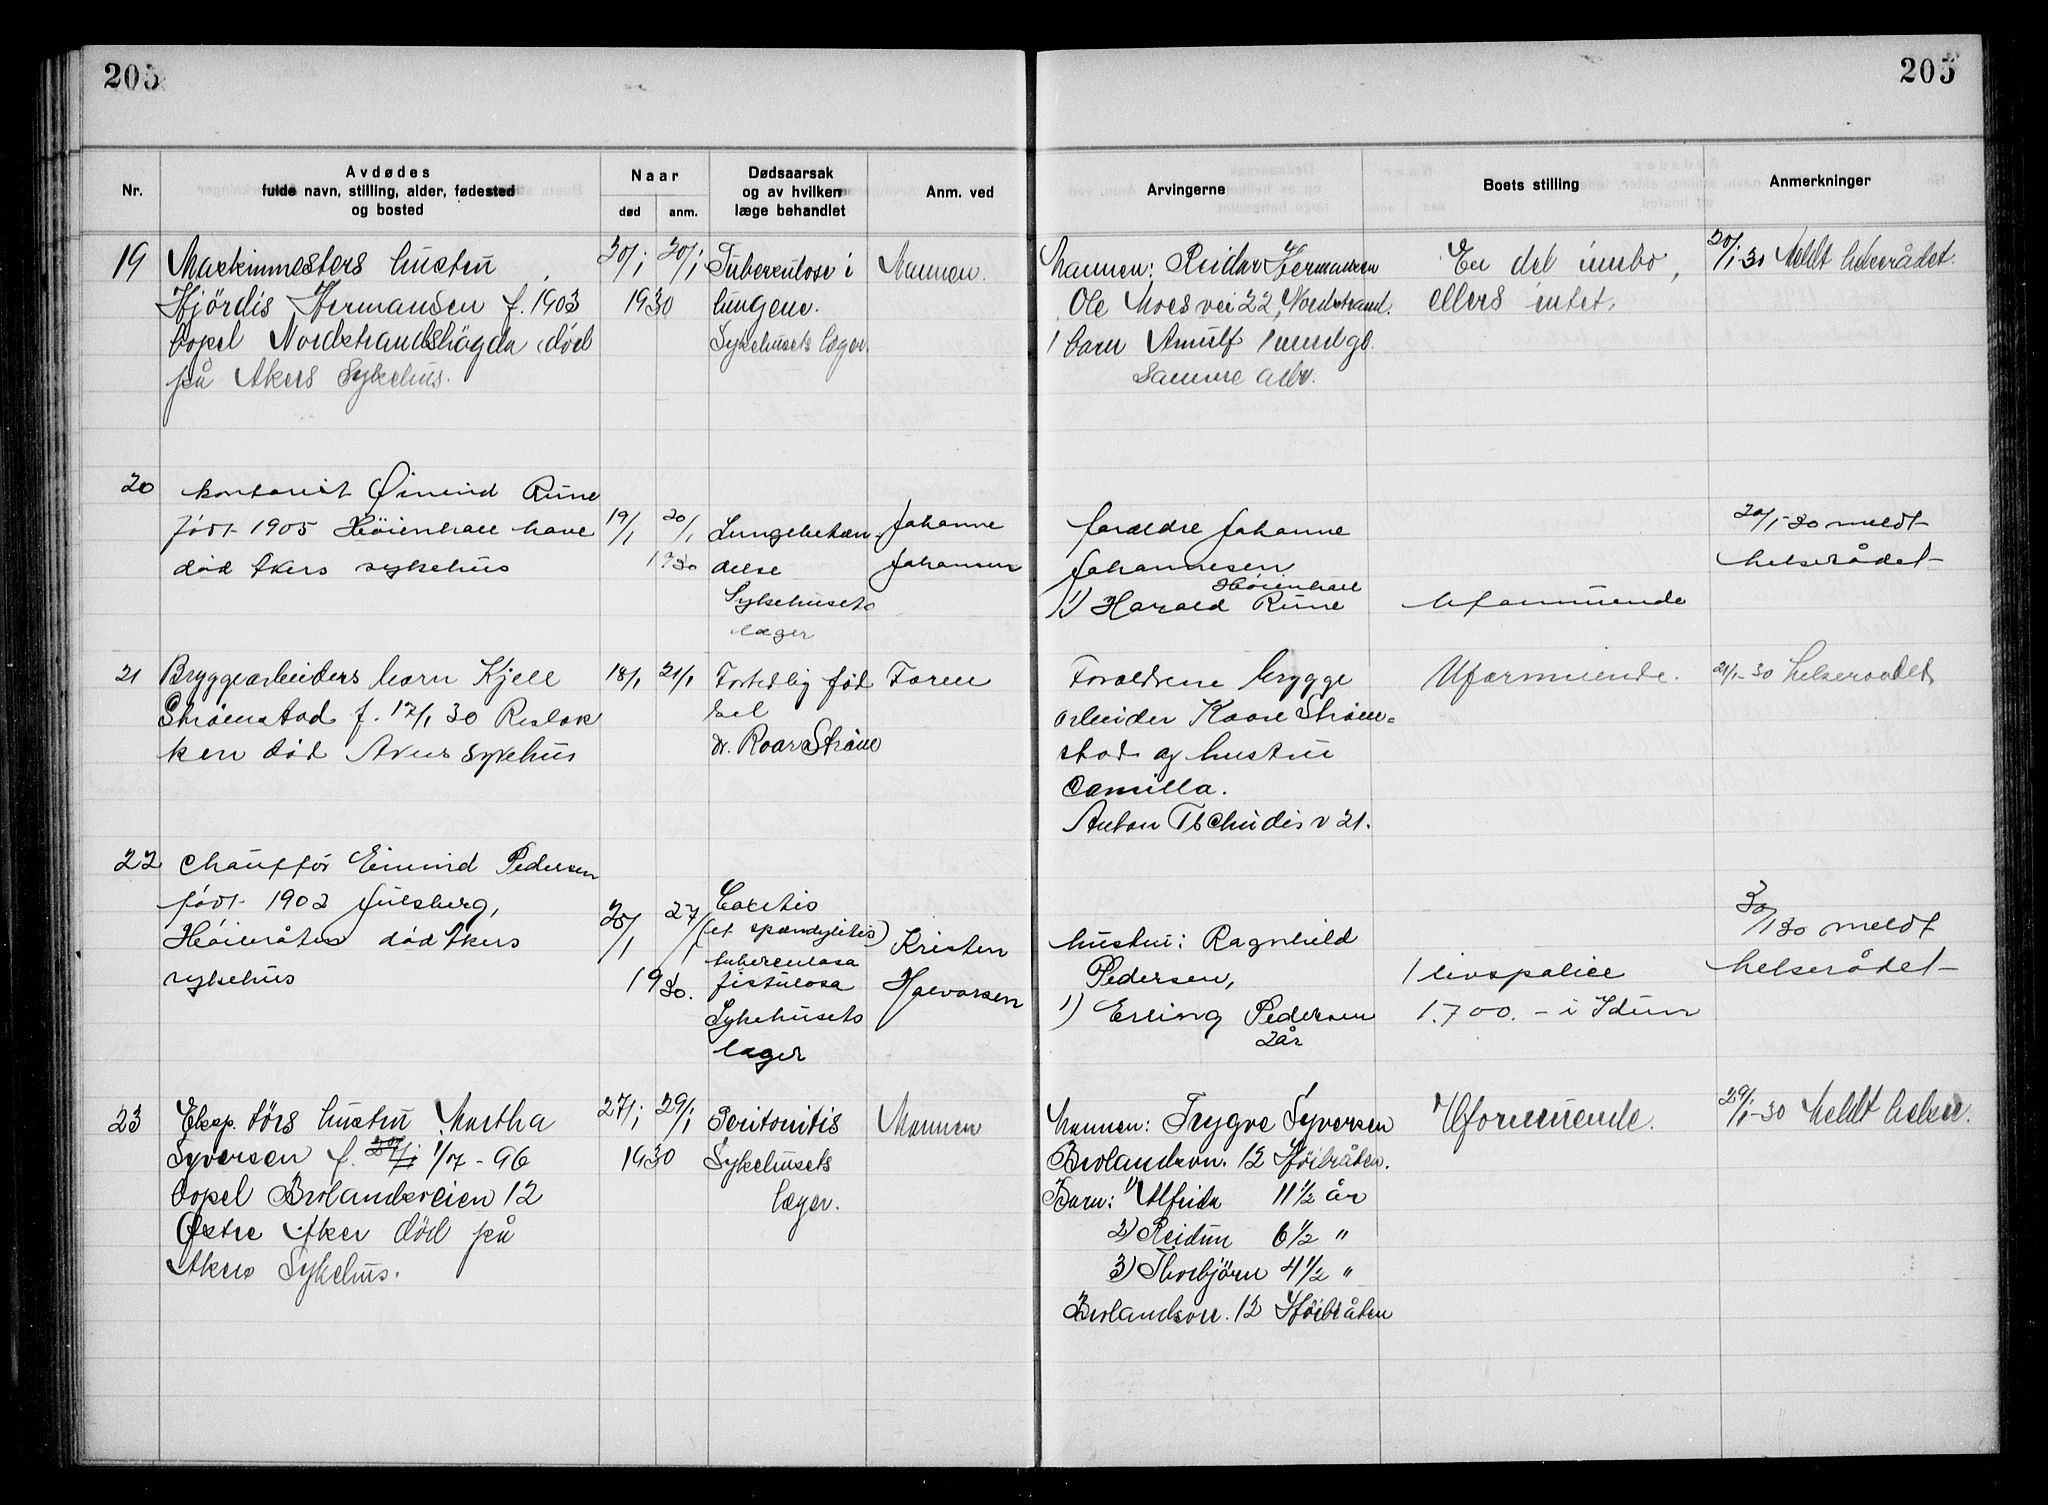 205
205
Nr.
Avdødes
fulde navn, stilling, alder, fødested
og bosted
Naar
død
anm.
Dødsaarsak
og av hvilken
læge behandlet
Anm. ved
Arvingerne
Boets stilling
Anmerkninger
19
Maskinmesters hustru
Hjördis Hermansen f. 1903
bopel Nordstrandshögda, död
på Akers Sykehus.
20/1 20/1
1930
Tuberculose i
lungene.
Sykehusets læger.
Mannen.
Mannen: Reidar Hermansen
Ole Moes vei 22, Nordstrand.
1 barn Arnulf 1 mnd gl.
Samme adr.
En del innbo,
ellers intet.
20/1-30 Meldt helserådet.
20
kontorist Øivind Rune
født 1905 Høienhall have
død Akers sykehus
19/1
20/1
1930
Lungebetæn
delse
Sykehusets
læger
Johanne
Johansen
foreldre Johanne
Johannesen
Høienhall
1) Harald Rune
Uformuende
20/1-30 meldt
helserådet
21
Bryggearbeiders barn Kjell
Strømstad f. 17/1 30 Risløk
ken død Akers sykehus
18/1 21/1
Fortidlig fød
sel
dr. Roar Strøm
Faren
Foreldrene brygge
arbeider Kaare Strøm-
stad og hustru
Camilla.
Anton Tschudis v 21.
Uformuende.
21/1-30 helseraadet
22
Chauffør Eivind Pedersen
født 1902 Julsberg,
Høibråten død Akers
sykehus
27/1
1930.
Coxitis
(et spondylitis)
tuberculosa
fistulosa
Sykehusets
læger
Kristen
Halvorsen
hustru: Ragnhild
Pedersen,
1) Erling Pedersen
2 år
1 livspolice
1.700.- i Idun
30/1 30 meldt
helserådet
23
Eksp. törs hustru Martha
Syversen f. 1/07 - 96
bopel Brolandsveien 12
Østre Aker död på
Akers Sykehus.
27/1 29/1
1930
Peritonitis
Sykehusets
læger.
Mannen
Mannen: Trygve Syversen
Brolandsvn. 12 Höibråten.
Barn: 1) Alfrida 11 1/2 år
2) Reidun 6 1/2 "
3) Thorbjörn 4 1/2 "
Brolandsvn. 12 Höibråten
Uformuende.
29/1-30 Meldt helser.